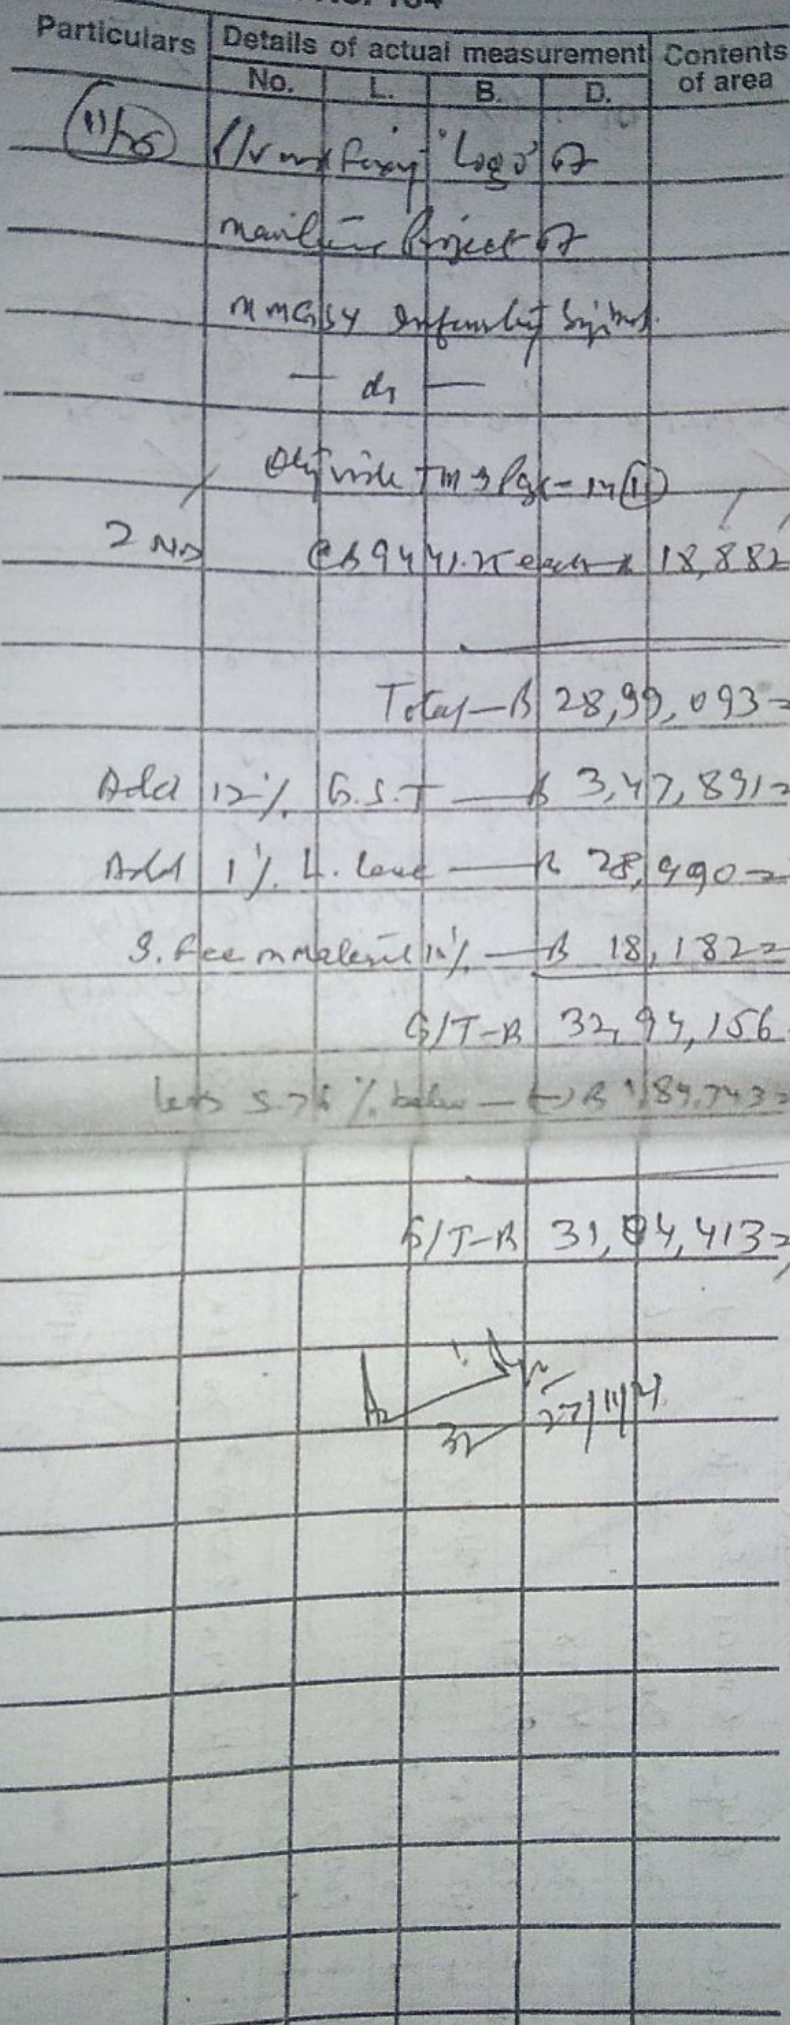 Particulars Details of actual measurement Contents of area
No. L. B. D.
P/v and fixing 'Logo' of
Project of
MMGSY Symbol.
Qty vide TMB Pg - 14 (11)
2 Nos @ Rs 9441.25 each Rs 18,882
Total - Rs 28,99,093=
Add 12% G.S.T — Rs 3,47,891=
Add 1% L. Cess — Rs 28,990=
S. fee on material 10% — Rs 18,182=
G/T - Rs 32,94,156
Less 5.76 % below — (-) Rs 1,89,743=
G/T - Rs 31,04,413=
27/11/21